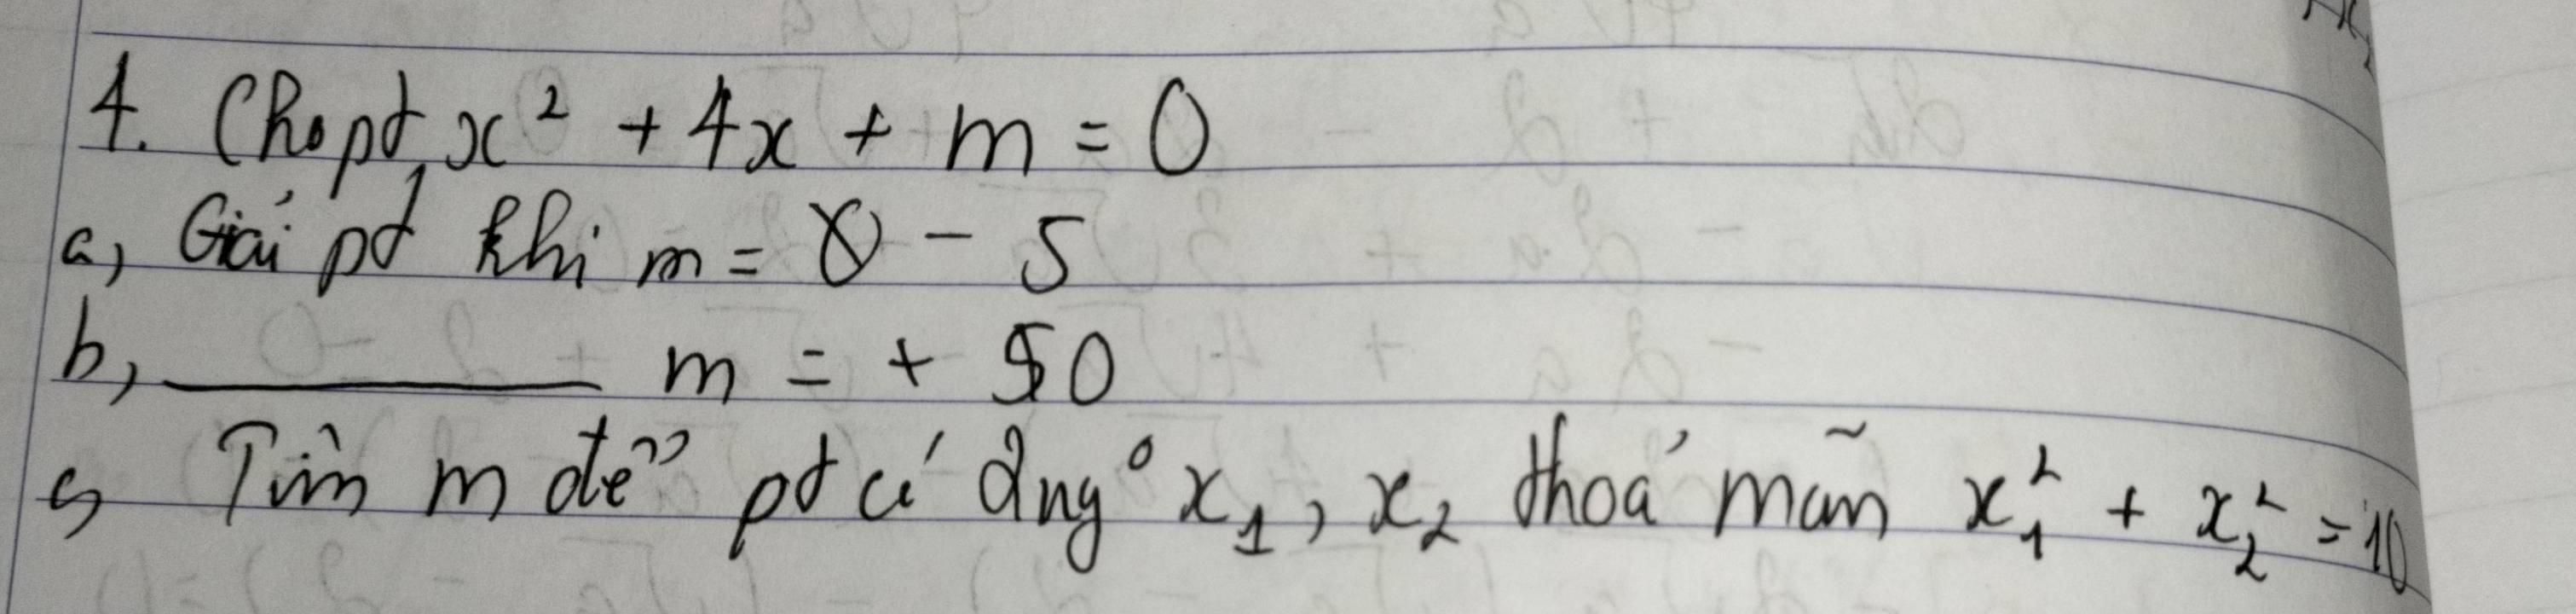 4. Cho pt x² + 4x + m = 0
a, Giải pt khi m = - 5
b, ________ m = + 0
c, Tìm m để pt có 2 ng° x₁, x₂ thoả mãn x₁² + x₂² = 10